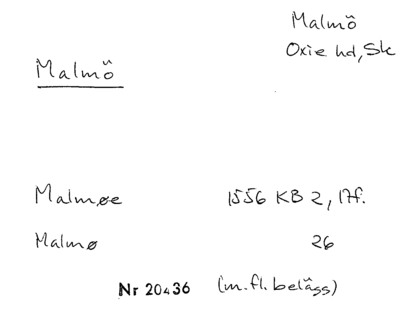 Malmö
Oxie hd, Sk
Malmö
Malmøe 1556 KB 2, 17f.
Malmø 26
Nr 20436 (m.fl. belägg)